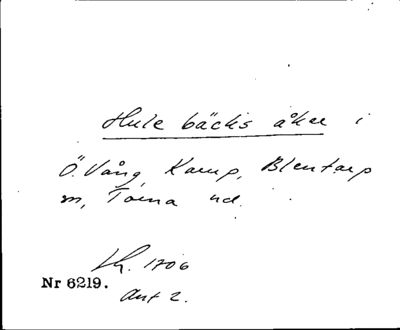 Hule bäcks åker i
Ö. Vång, Kamp, Blentarp
m, Torna hd.
Lh. 1706
Nr 6219.
Ant 2.